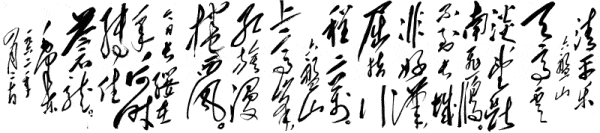 清平乐
六盘山
天高云
淡望断
南飞雁。
不到长城
非好汉
屈指行
程二万。
六盘山
上高峰
红旗漫
卷西风。
今日长缨在
手,何时
缚住
苍龙。
毛泽东